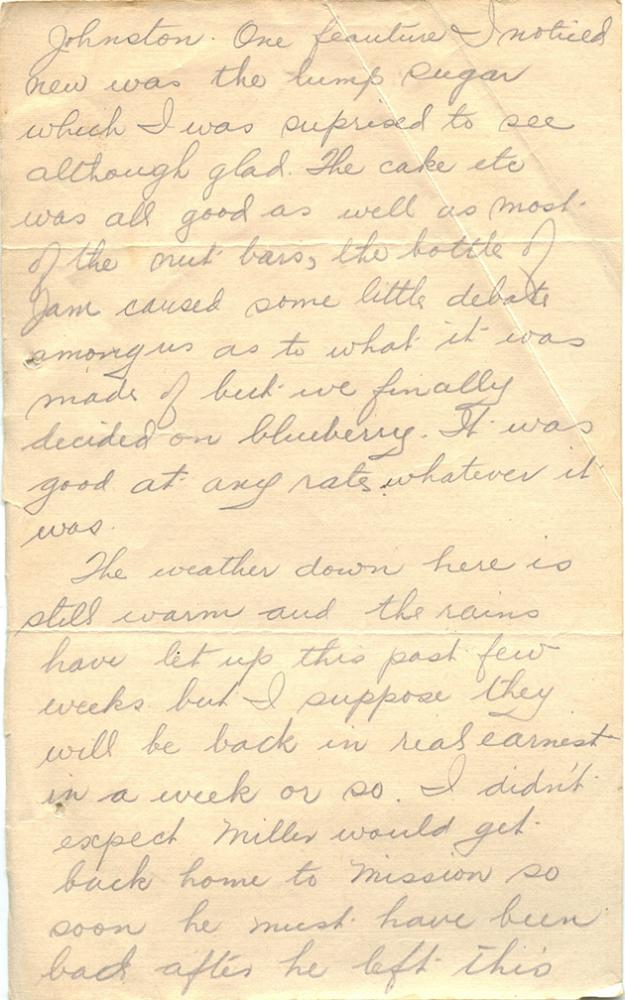 Johnston. One feauture I noticed
new was the lump sugar
which I was suprised to see
although glad. The cake etc
was all good as well as most
of the nut bars, the bottle of
Jam caused some little debate
among us as to what it was
made of but we finally
decided on blueberry. It was
good at any rate whatever it
was.
The weather down here is
still warm and the rains
have let up this past few
weeks but I suppose they
will be back in real earnest
in a week or so. I didn't
expect Miller would get
back home to Mission so
soon he must have been
bad after he left this